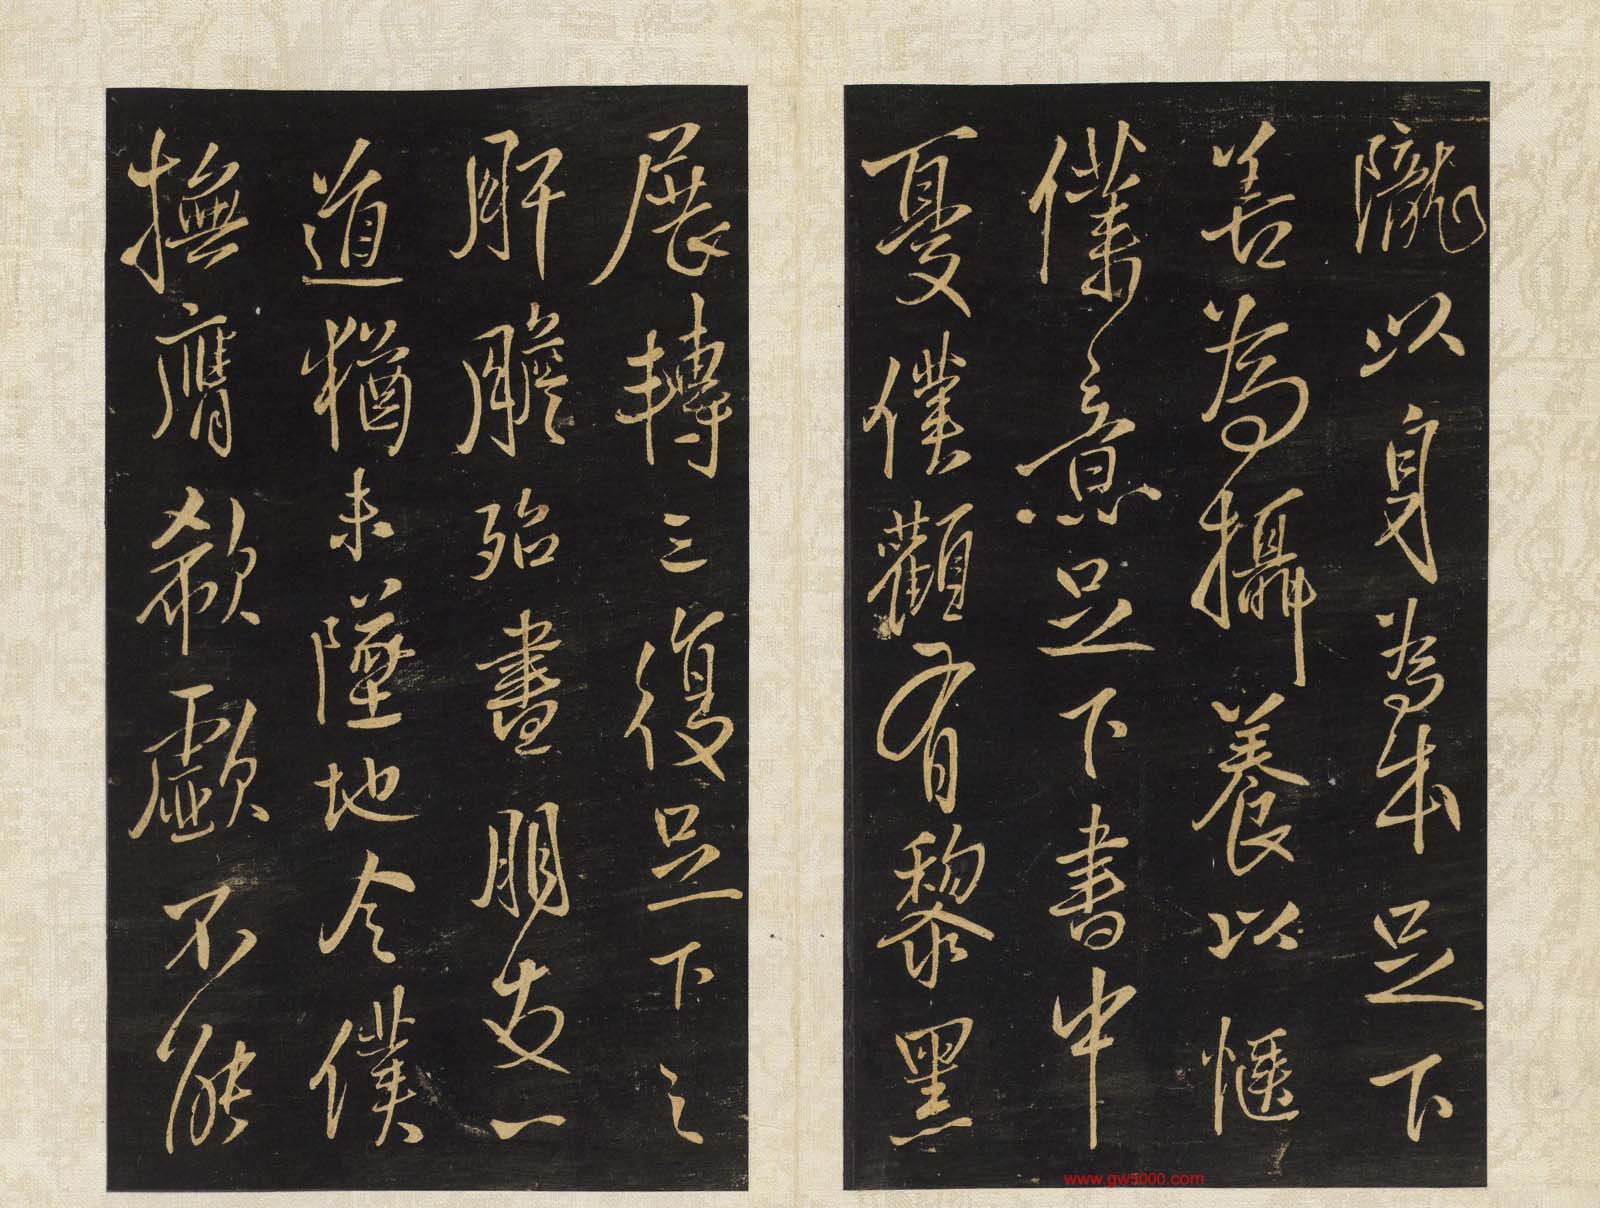 隴以身為本足下
善為攝養以愜
僕意足下書中
憂僕觀有黎黑
展轉三復足下之
肝膽殆盡朋友一
道猶未墜地令僕
撫膺欷歔不能
www.gw5000.com